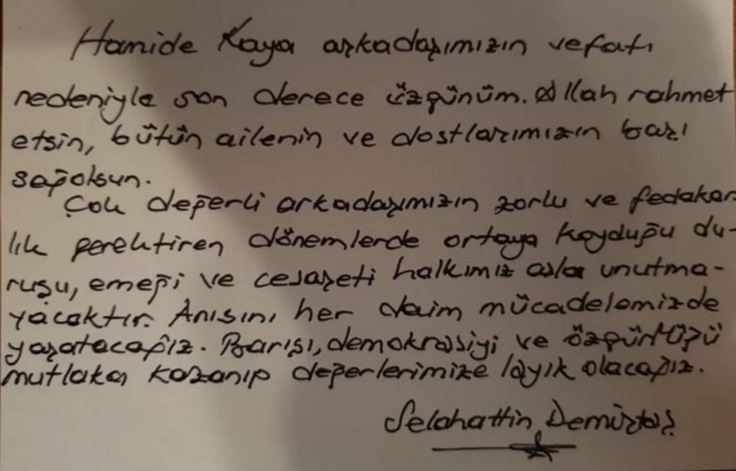 Hamide Kaya arkadaşımızın vefatı
nedeniyle son derece üzgünüm. Allah rahmet
etsin, bütün ailenin ve dostlarımızın başı
sağolsun.
Çok değerli arkadaşımızın zorlu ve fedakar-
lık gerektiren dönemlerde ortaya koyduğu du-
ruşu, emeği ve cesareti halkımız asla unutma-
yacaktır. Anısını her daim mücadelemizde
yaşatacağız. Barışı, demokrasiyi ve özgürlüğü
mutlaka kazanıp değerlerimize layık olacağız.
Selahattin Demirtaş